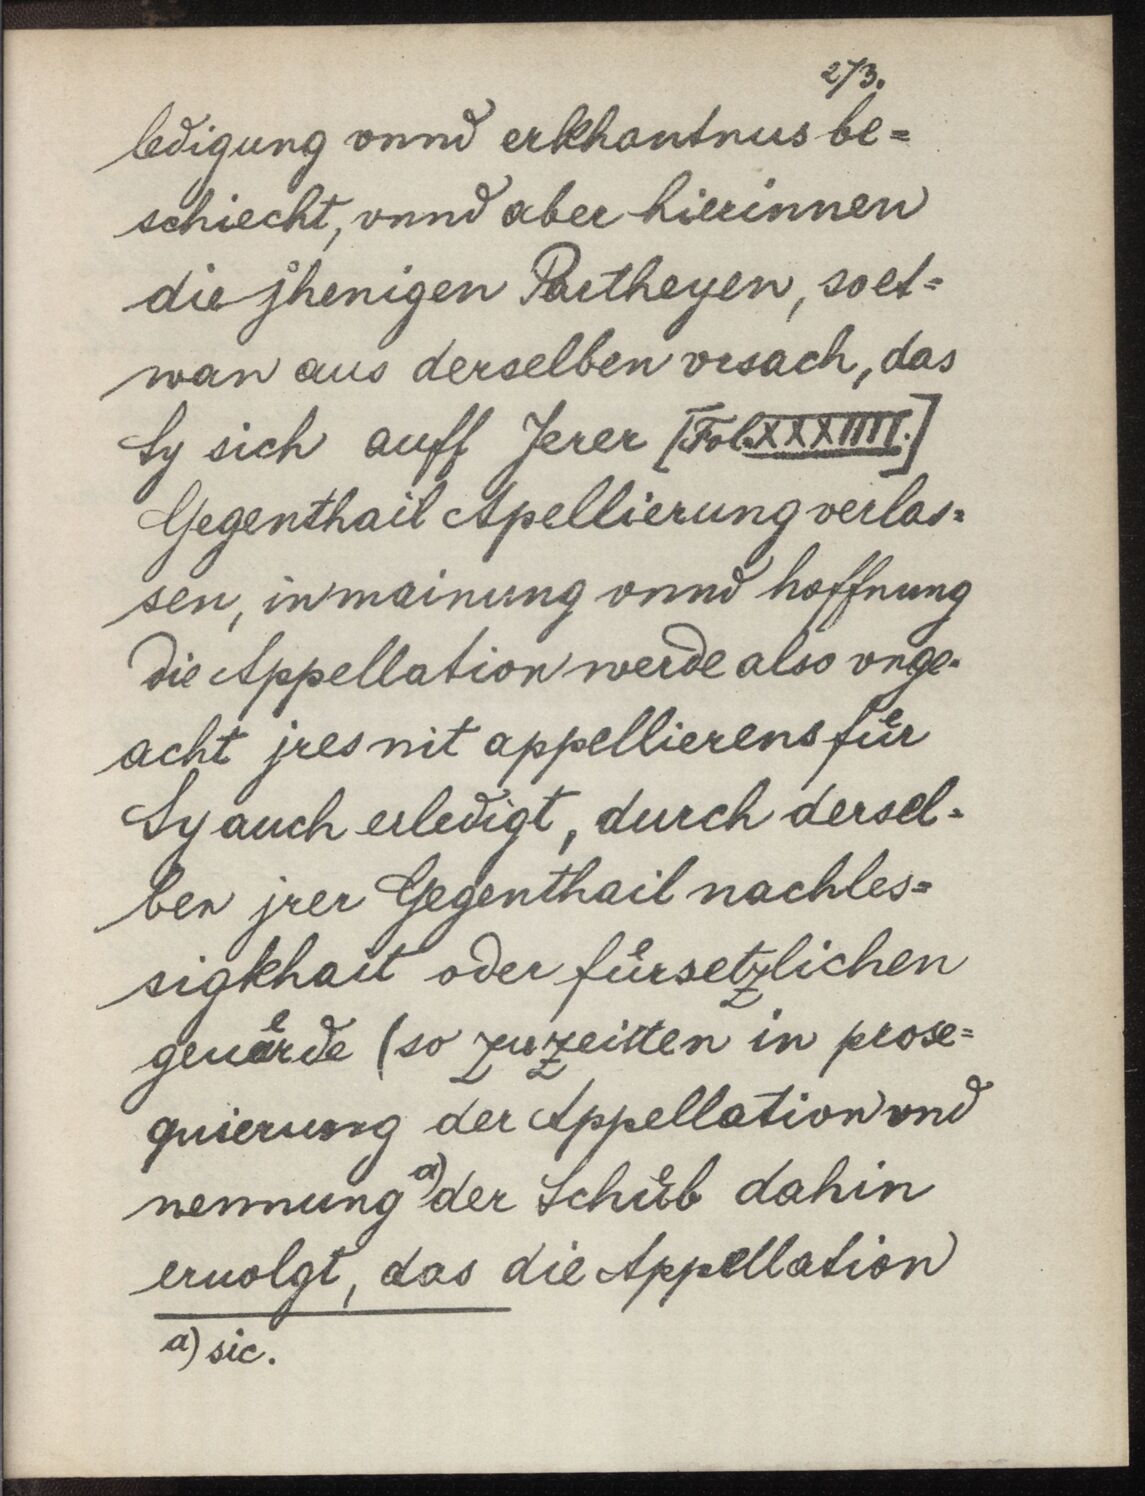 273.
ledigung vnnd erkhantnus be=
schiecht, vnnd aber hierinnen
die jhenigen Partheyen, so et=
wan aus derselben vrsach, das
Sy sich auff Jerer [Fol. XXXIIII.]
Gegenthail Apellierung verlas=
sen, in mainung vnnd hoffnung
die Appellation werde also vnge=
acht jres nit appellierens fuͤr
Sy auch erledigt, durch dersel=
ben jrer Gegenthail nachles=
sigkhait oder fuͤrsetzlichen
geuaͤrde (so zuzeitten in prose=
quierung der Appellation vnd
nennung a) der Schuͤb dahin
eruolgt, das die Appellation
a) sic.